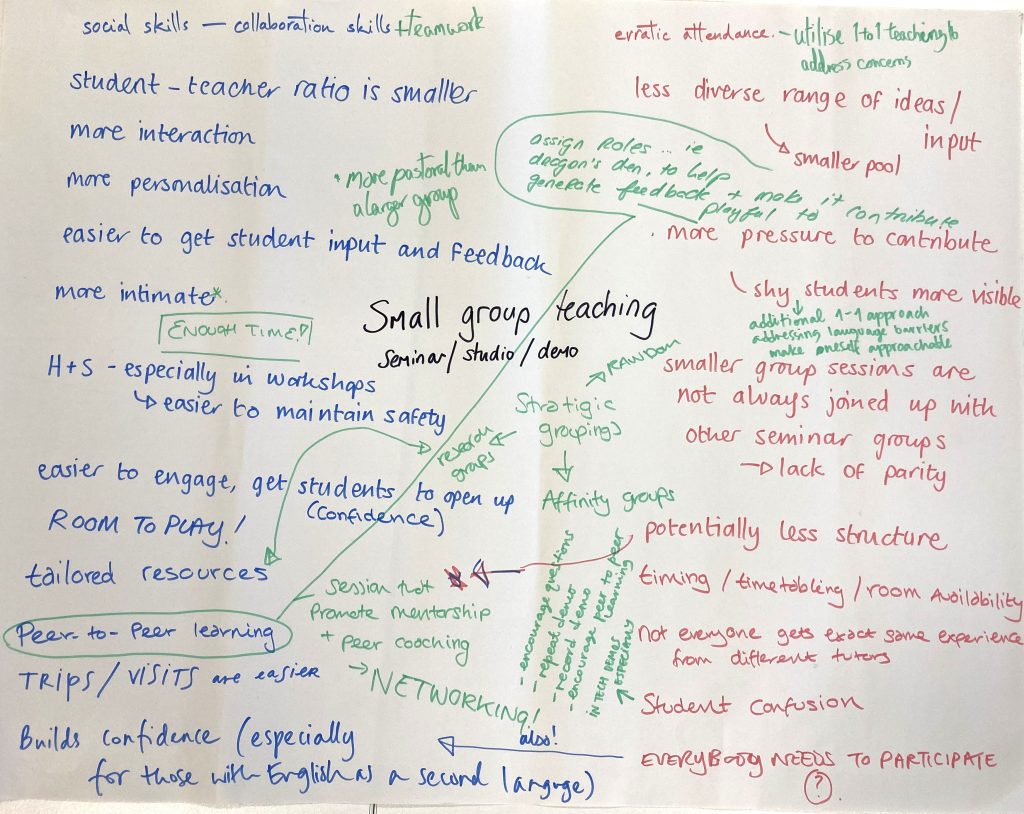 social skills — collaboration skills + teamwork
student - teacher ratio is smaller
more interaction
more personalisation
* more pastoral than
a larger group
easier to get student input and feedback
more intimate*
ENOUGH TIME?!
H+S - especially in workshops
↳ easier to maintain safety
easier to engage, get students to open up
(confidence)
ROOM TO PLAY!
tailored resources
Peer-to-Peer learning
TRIPS / VISITS are easier
Builds confidence (especially
for those with English as a second languge)
Small group teaching
seminar/studio/demo
Stratigic
groupings
RANDOM
research
groups
Affinity groups
Session that
Promote mentorship
+ Peer coaching
→ NETWORKING!
- encourage questions
- repeat demos
- record demo
- encourage peer to peer
learning
IN TECH DEMOS
↑ ESPECIALLY
also!
erratic attendance. - utilise 1 to 1 teaching to
address concerns
less diverse range of ideas/
input
↘ smaller pool
assign roles ... ie
dragon's den, to help
generate feedback + make it
playful to contribute
. more pressure to contribute
↘ shy students more visible
additional 1-1 approach
addressing language barriers
make oneself approachable
smaller group sessions are
not always joined up with
other seminar groups
→ lack of parity
potentially less structure
timing / timetabling / room availability
Not everyone gets exact same experience
from different tutors
Student confusion
EVERYBODY NEEDS TO PARTICIPATE
?